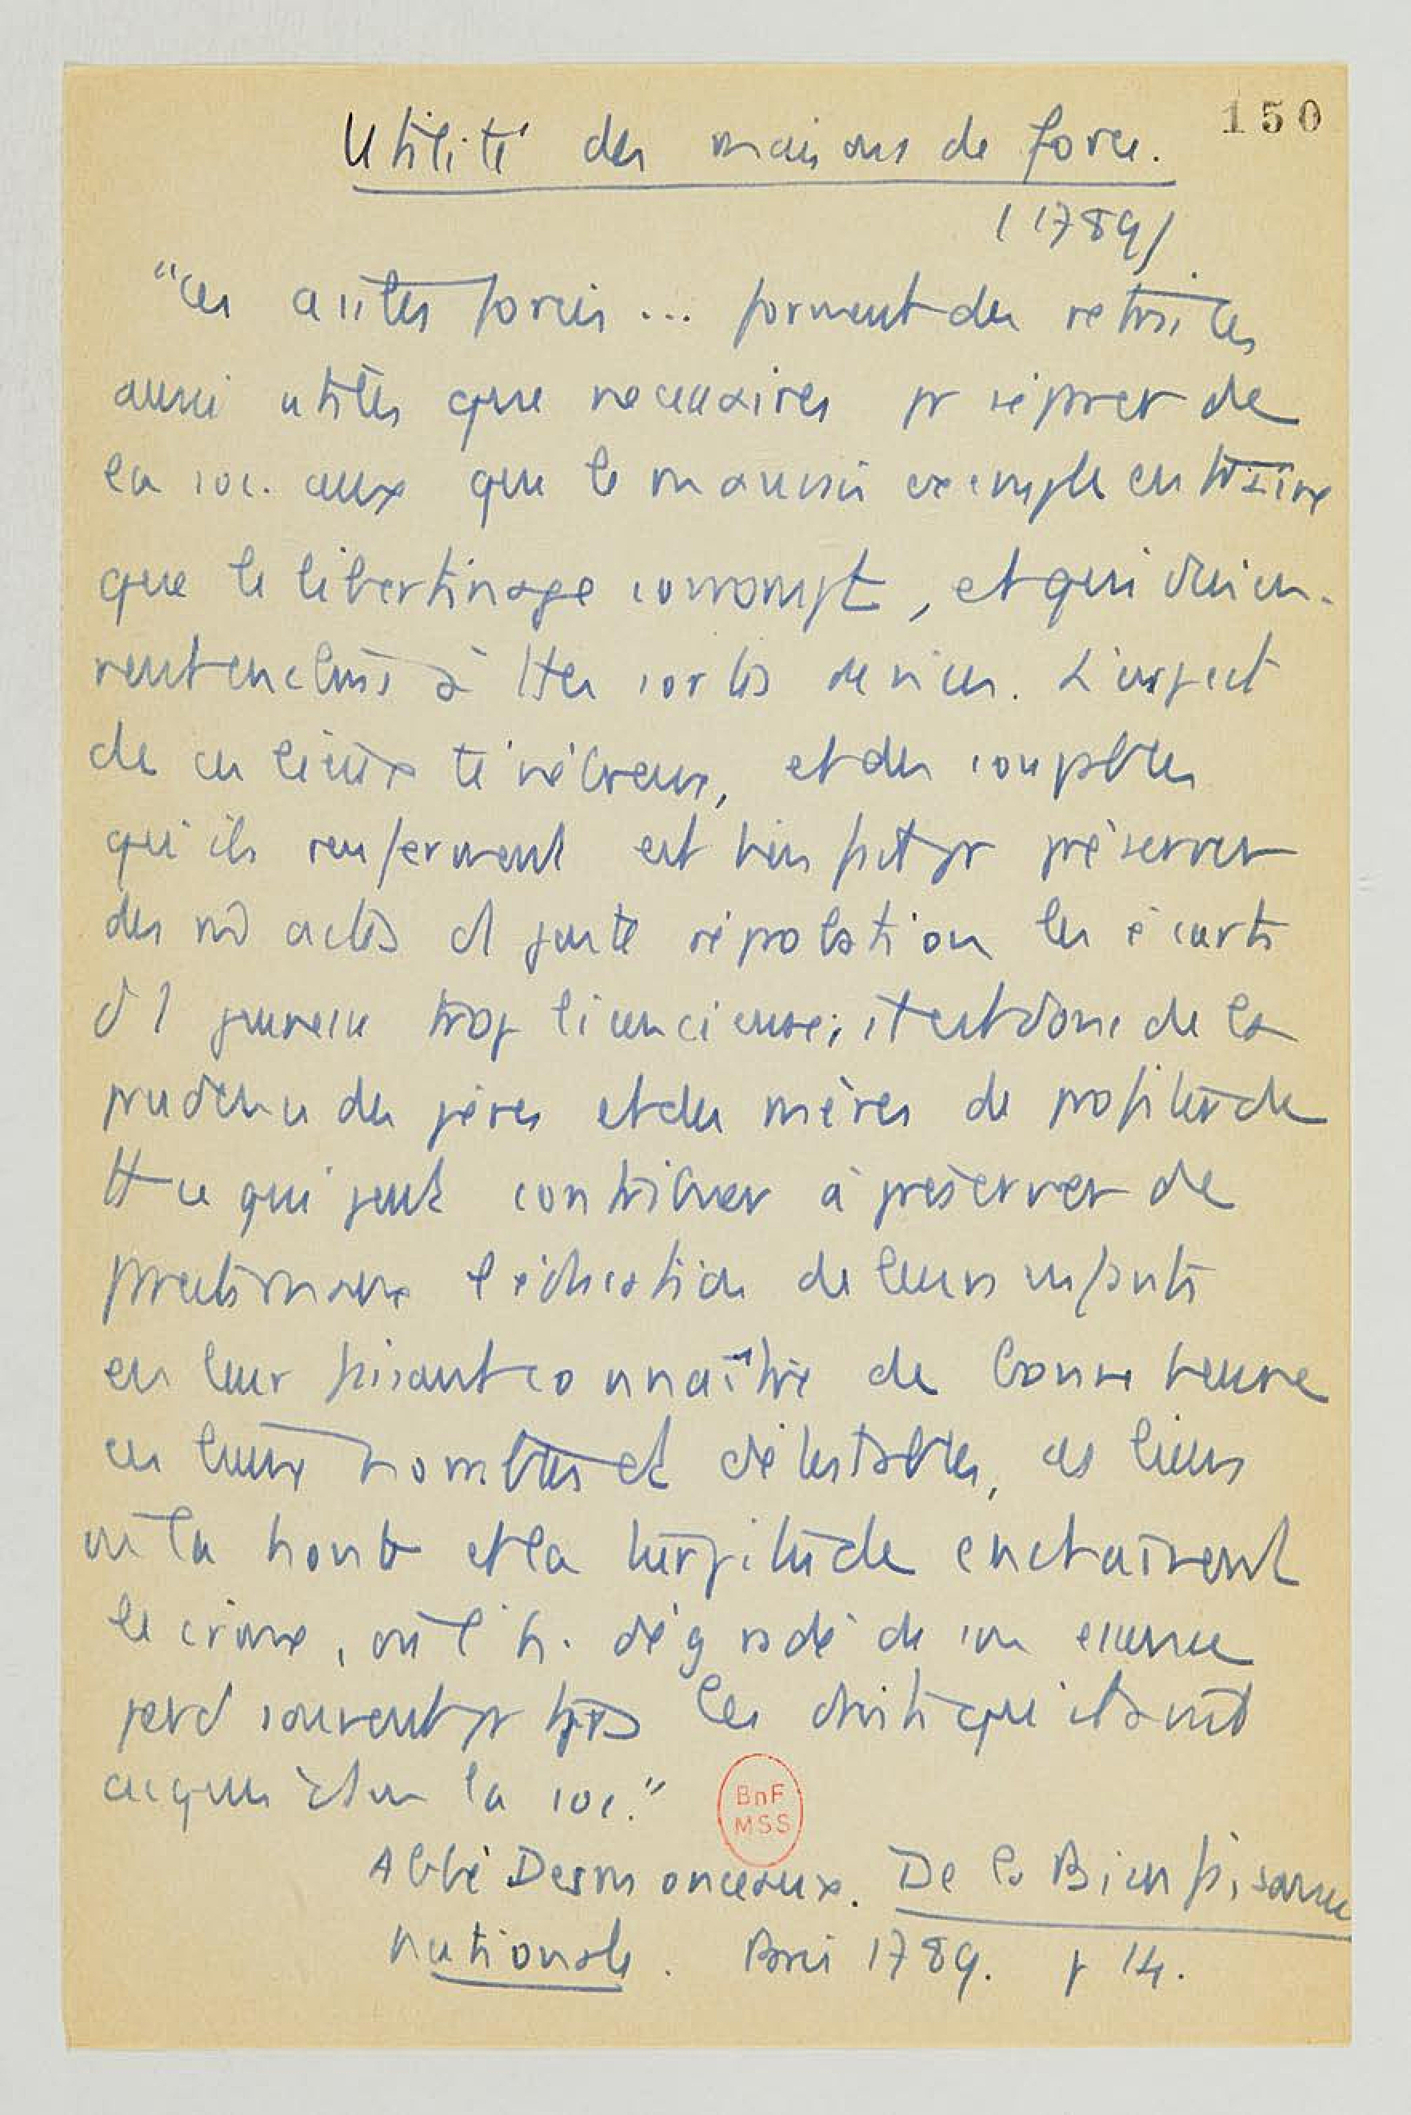 150
Utilité des maisons de force.
(1789)
"Ces asiles forcés ... forment des retraites
aussi utiles que necessaires pr séparer de
la soc. ceux que le mauvais exemple entraîne
que le libertinage corrompt, et qui
enclins à ttes sortes de vices. L'aspect
de ces lieux ténébreux, et des coupables
qu'ils renferment est bien fait pr préserver
des m̂ actes d juste réprobation les écarts
d'1 jeunesse trop licencieuse; il est donc de la
prudence des pères et des mères de profiter de
tt ce qui peut contribuer à préserver de
l'éducation de leurs enfants
en leur faisant connaître de bonne heure
ces lieux horribles et détestables, ces lieux
où la honte et la turpitude enchaînent
le crime, où l'h. dégradé de son essence
perd souvent pr tjrs les droits qu'il avait
acquis ds la soc."
BnF
MSS
Abbé Desmonceaux. De la Bienfaisance
nationale. Paris 1789. p 14.